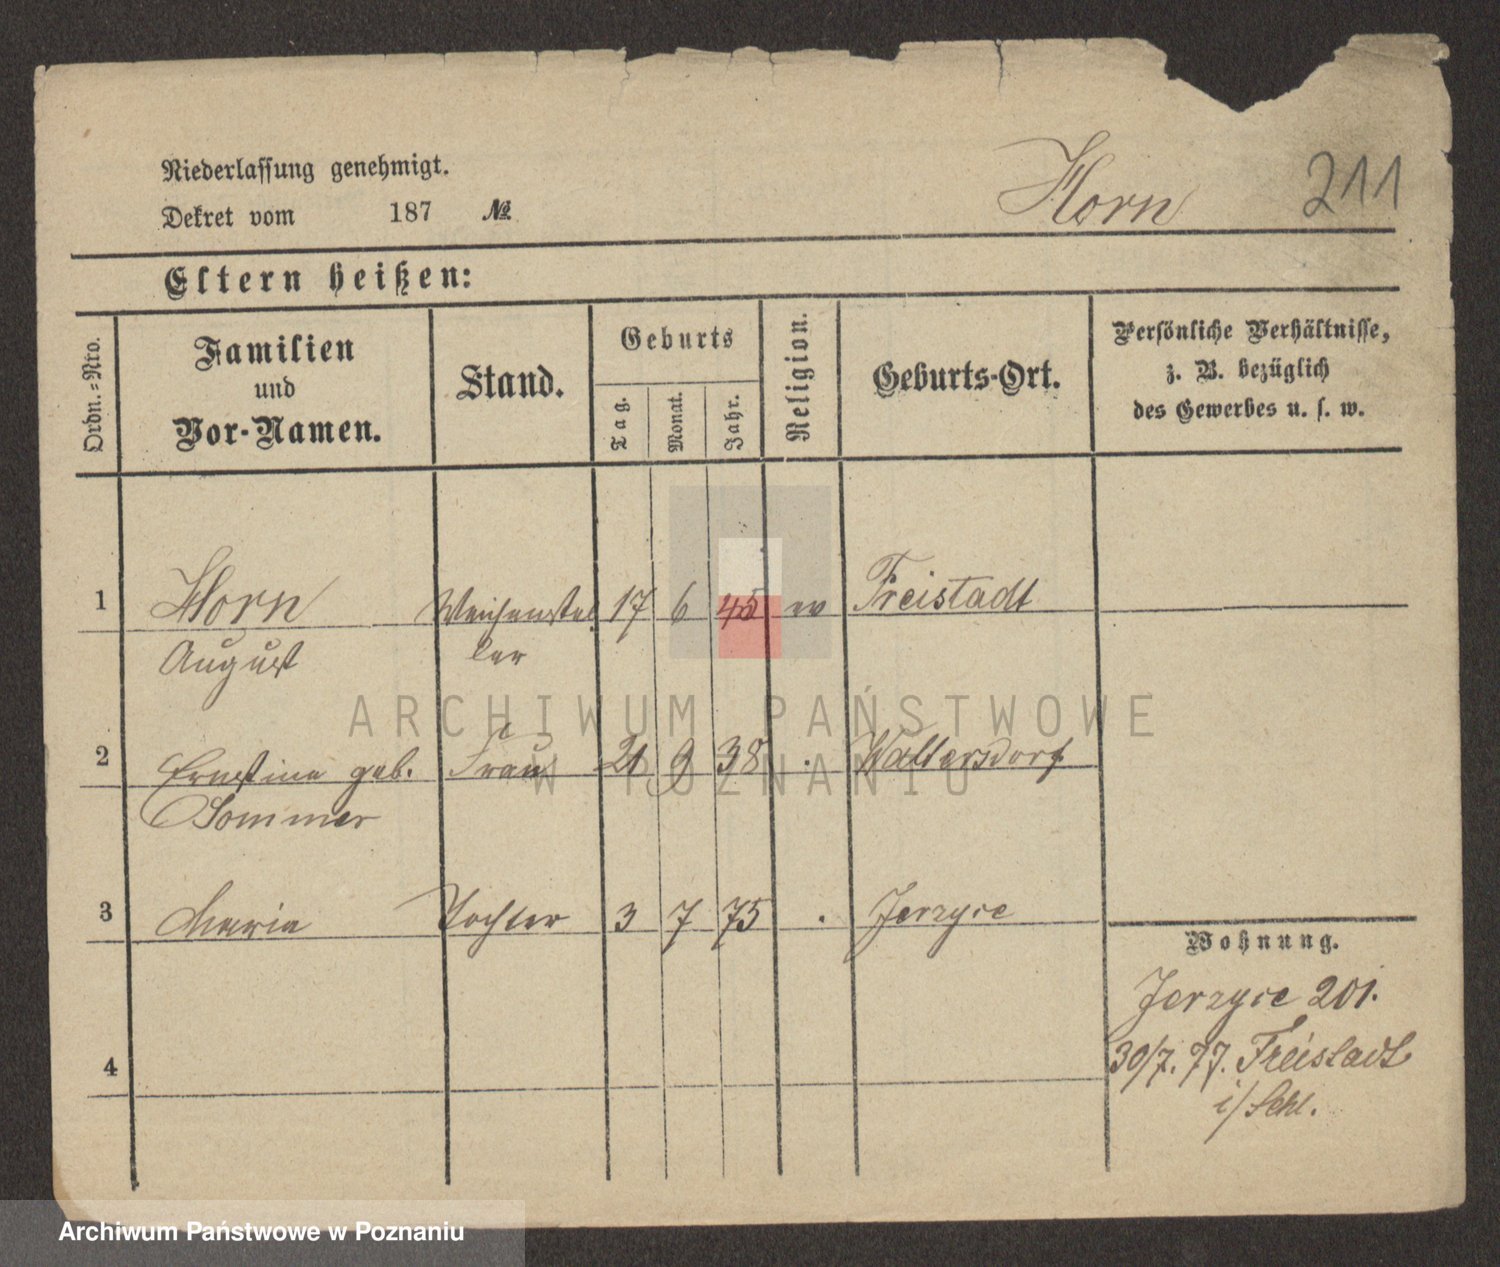 Niederlassung genehmigt.
Dekret vom 187 №
Horn 211
Eltern heißen:
Ordn.-Nro.
Familien
und
Vor-Namen.
Stand.
Geburts
Tag.
Monat.
Jahr.
Religion.
Geburts-Ort.
Persönliche Verhältnisse,
z. B. bezüglich
des Gewerbes u. s. w.
1 Horn Weichenstel 17 6 45 ev Freistadt
August ler
ARCHIWUM PAŃSTWOWE
W POZNANIU
2 Ernestine geb. Frau 21 9 38 . Waltersdorf
Sommer
3 Maria Tochter 3 7 75 . Jerzyce
Wohnung.
Jerzyce 201.
4
30/7. 77. Freistadt
i/Schl.
Archiwum Państwowe w Poznaniu